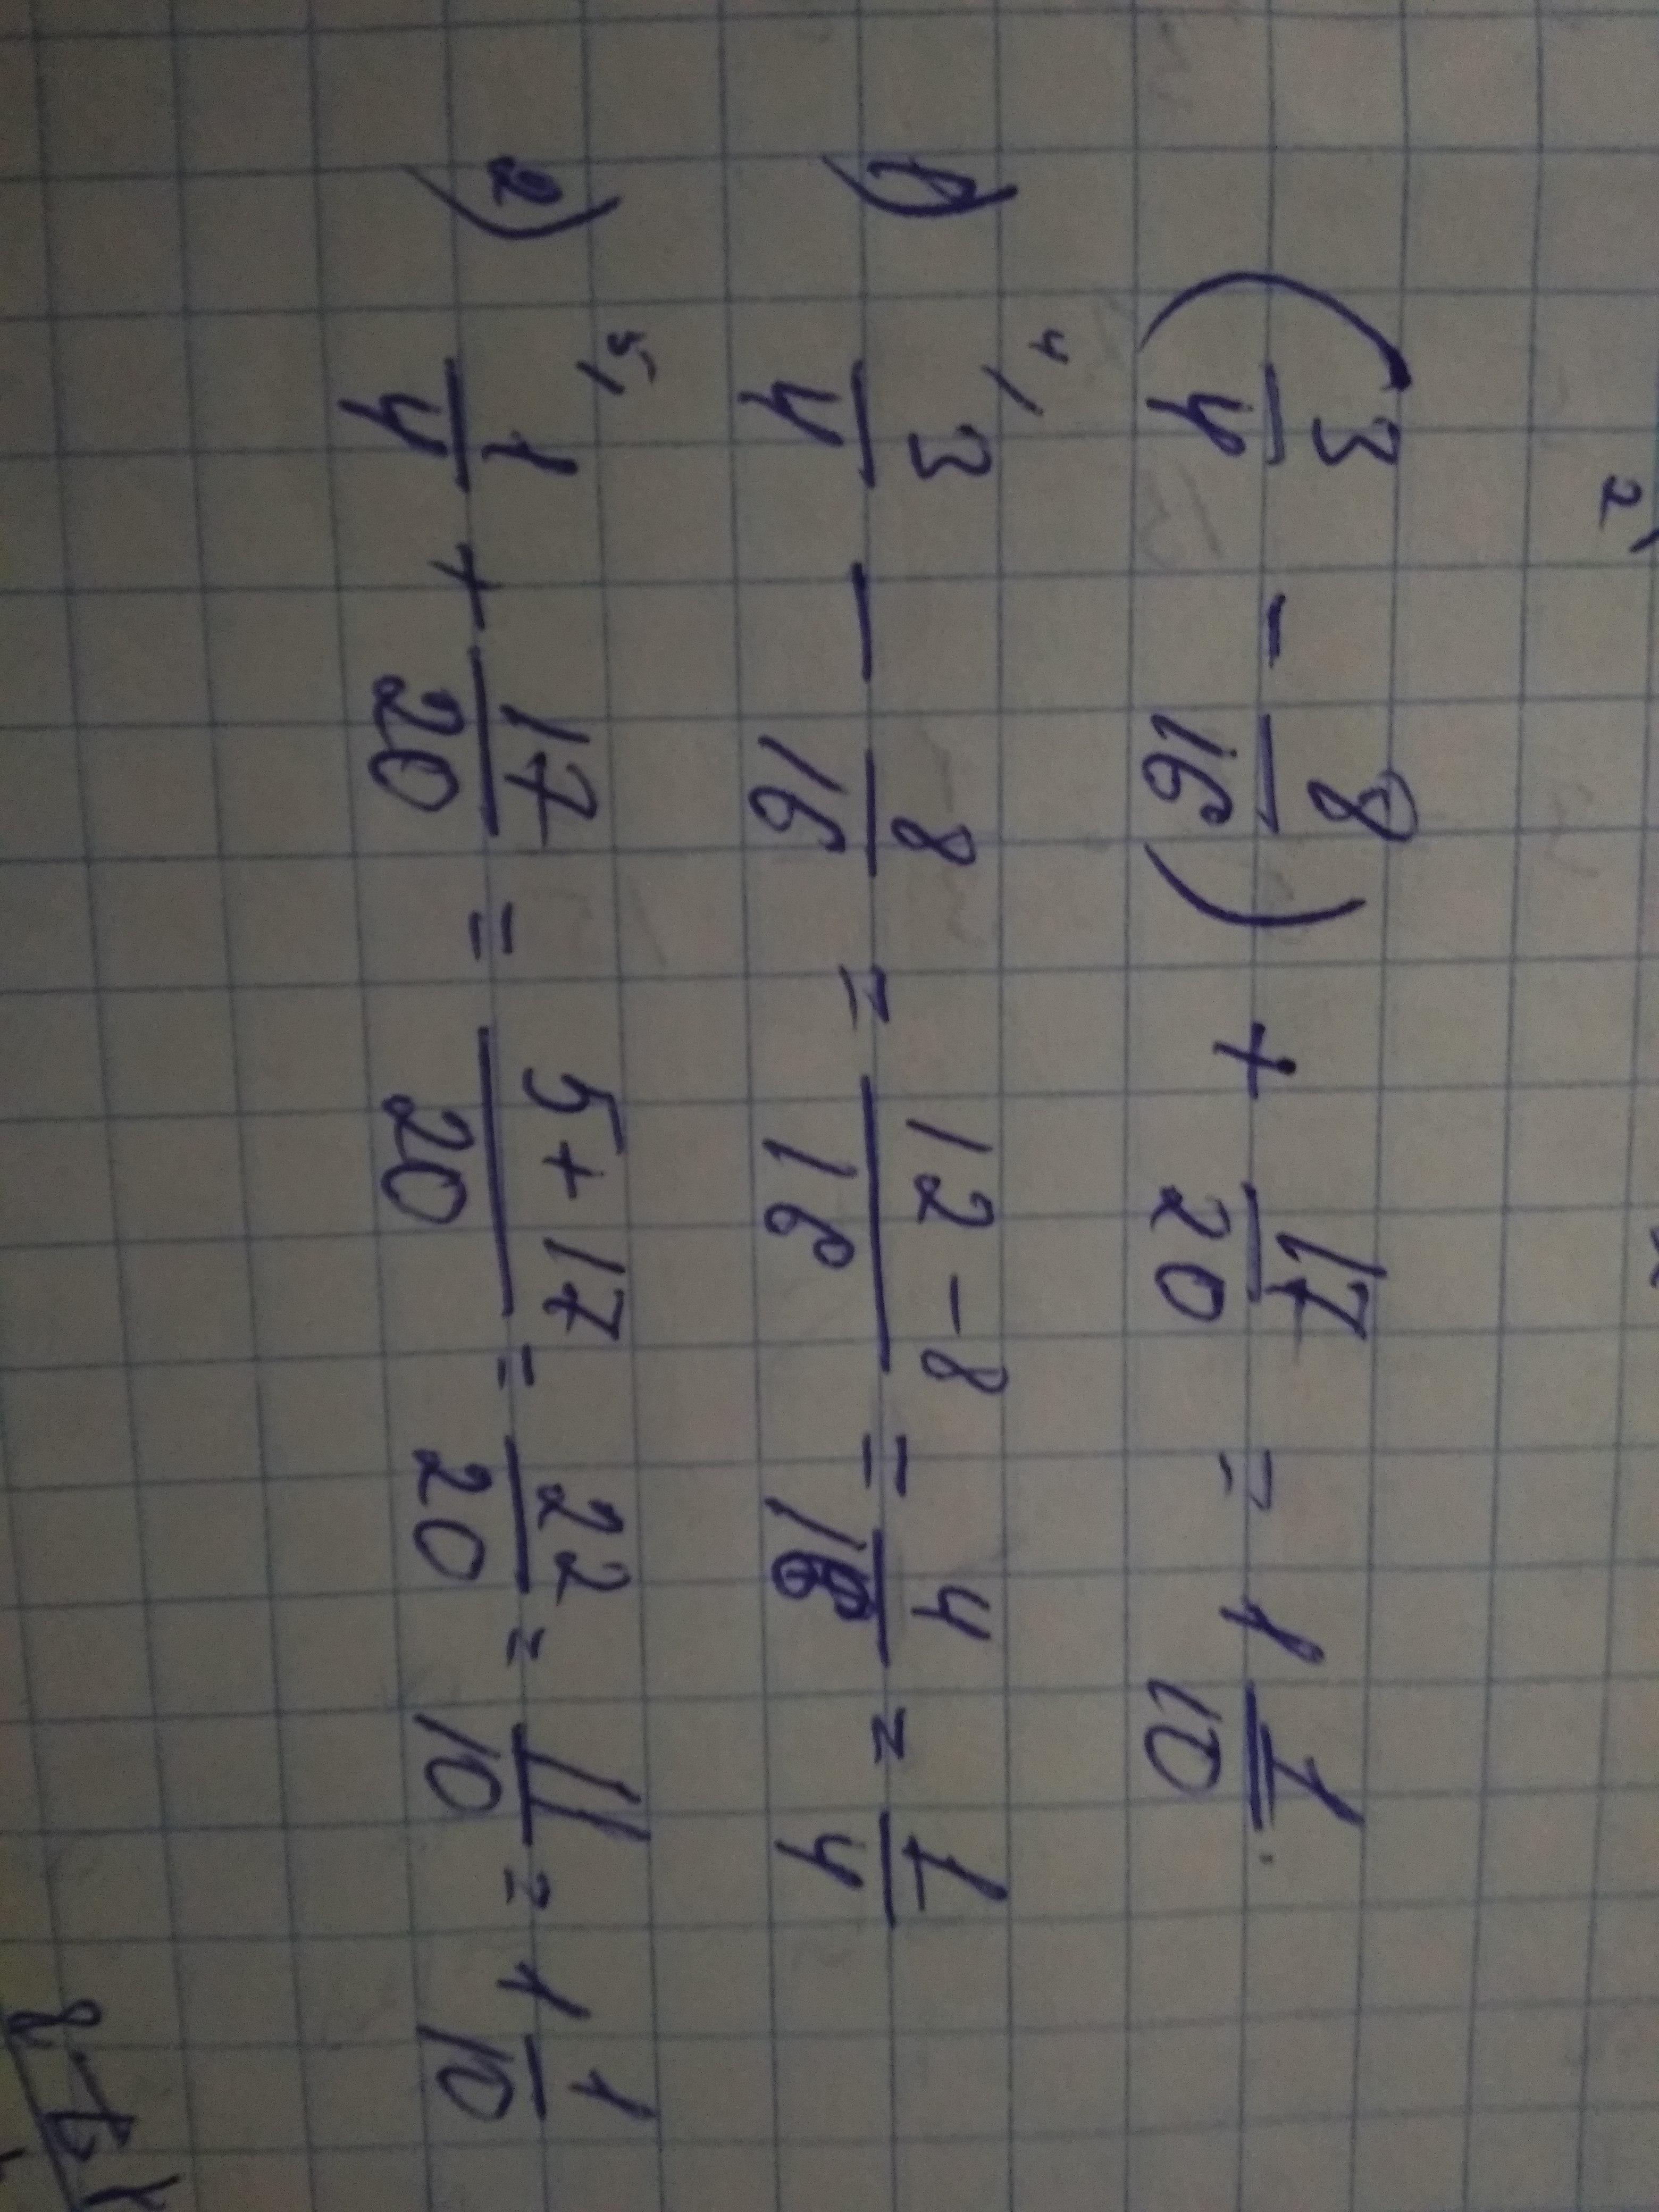 (3/4 - 8/16) + 17/20 = 1 1/10.
1) 4/ 3/4 - 8/16 = (12-8)/16 = 4/16 = 1/4
2) 5/ 1/4 + 17/20 = (5+17)/20 = 22/20 = 11/10 = 1 1/10